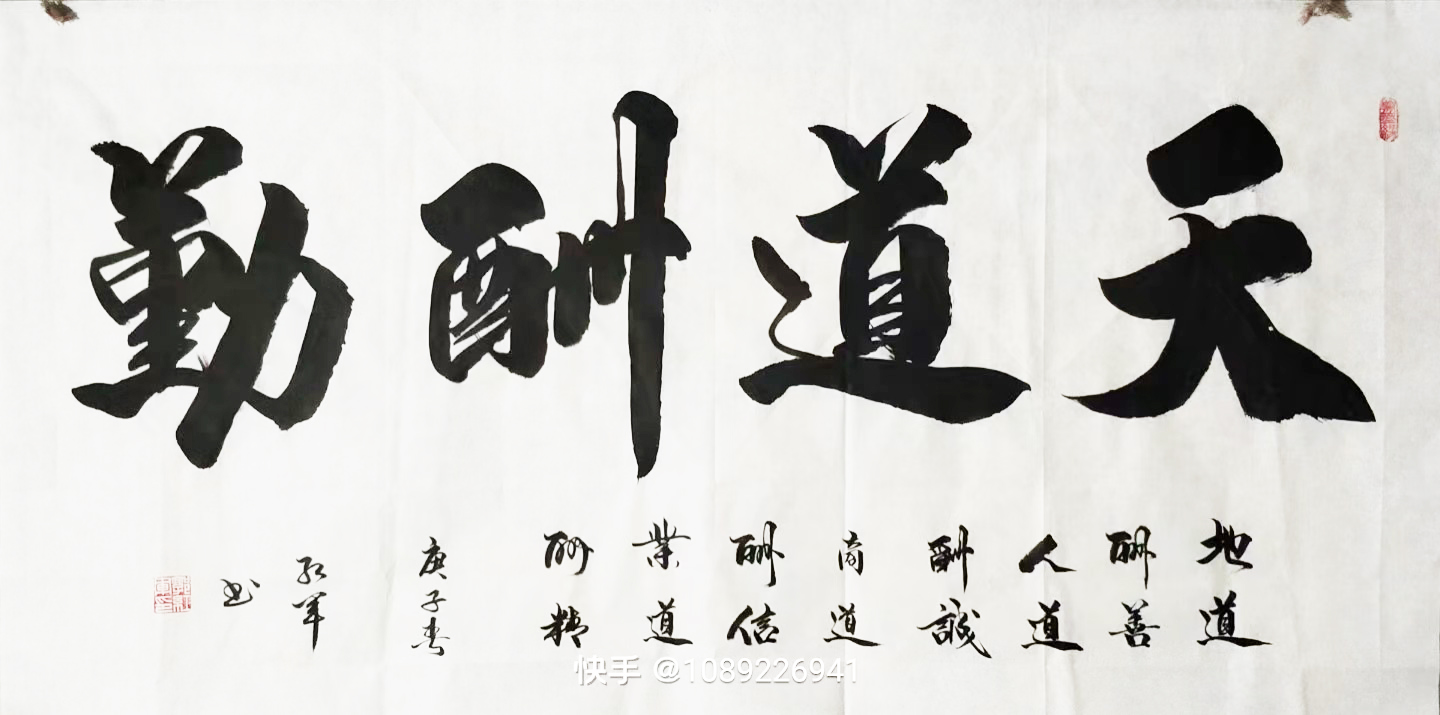 天道酬勤
地道
酬善
人道
酬誠
商道
酬信
業道
酬精
庚子春
红军
书
快手 @1089226941